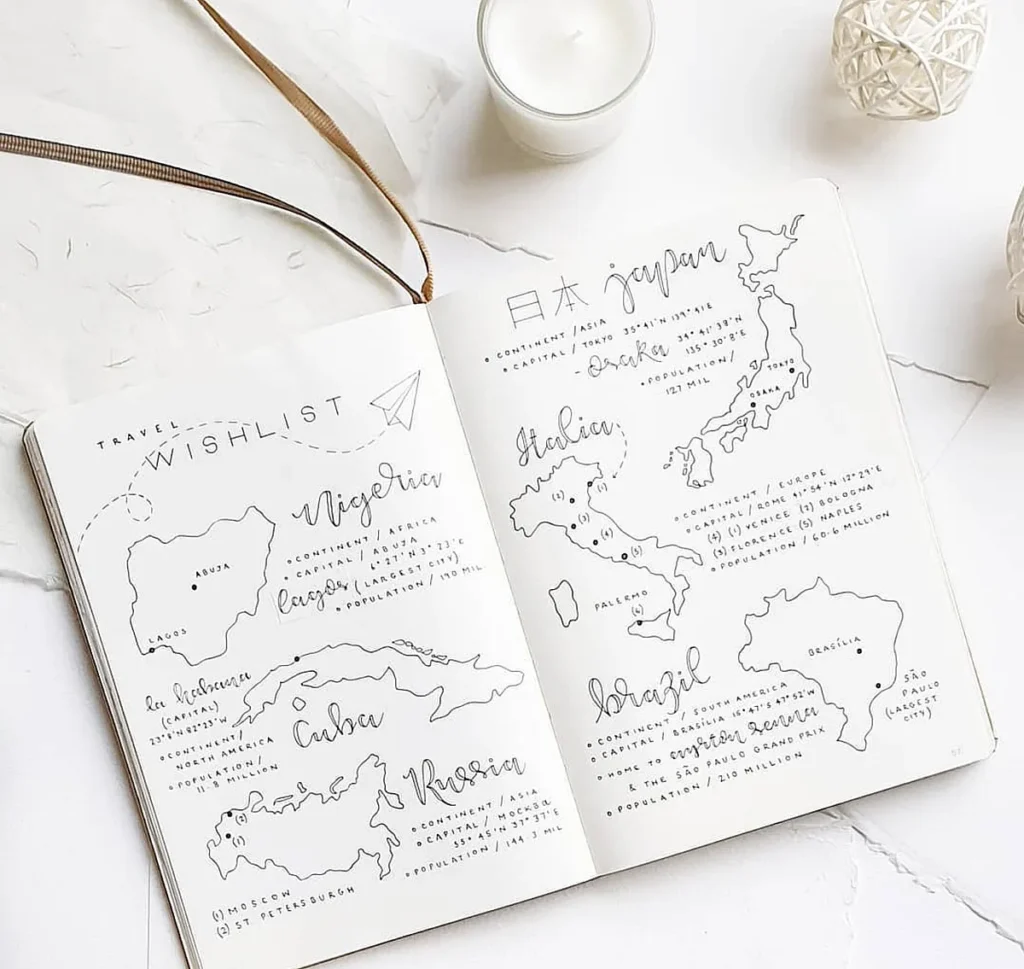 TRAVEL
WISHLIST
Nigeria
• CONTINENT / AFRICA
• CAPITAL / ABUJA
6°27'N 3°23'E
lagos (LARGEST CITY)
• POPULATION / 190 MIL
ABUJA
LAGOS
la habana
(CAPITAL)
23°8'N 82°23'W
• CONTINENT /
NORTH AMERICA
• POPULATION /
11.8 MILLION
Cuba
Russia
• CONTINENT / ASIA
• CAPITAL / МОСКВА
55°45'N 37°37'E
• POPULATION / 144.3 MIL
(2)
(1)
(1) MOSCOW
(2) ST PETERSBURGH
日本 japan
• CONTINENT / ASIA
• CAPITAL / TOKYO 35°41'N 139°41'E
- osaka 34°41'38"N
135°30'8"E
• POPULATION /
127 MIL
TOKYO
OSAKA
Italia
(2)
(1)
(3)
(4)
(5)
• CONTINENT / EUROPE
• CAPITAL / ROME 41°54'N 12°29'E
(4) (1) VENICE (2) BOLOGNA
(3) FLORENCE (5) NAPLES
• POPULATION / 60.6 MILLION
PALERMO
(6)
brazil
• CONTINENT / SOUTH AMERICA
• CAPITAL / BRASÍLIA 15°47'S 47°52'W
• HOME TO ayrton senna
& THE SÃO PAULO GRAND PRIX
• POPULATION / 210 MILLION
BRASÍLIA
SÃO
PAULO
(LARGEST
CITY)